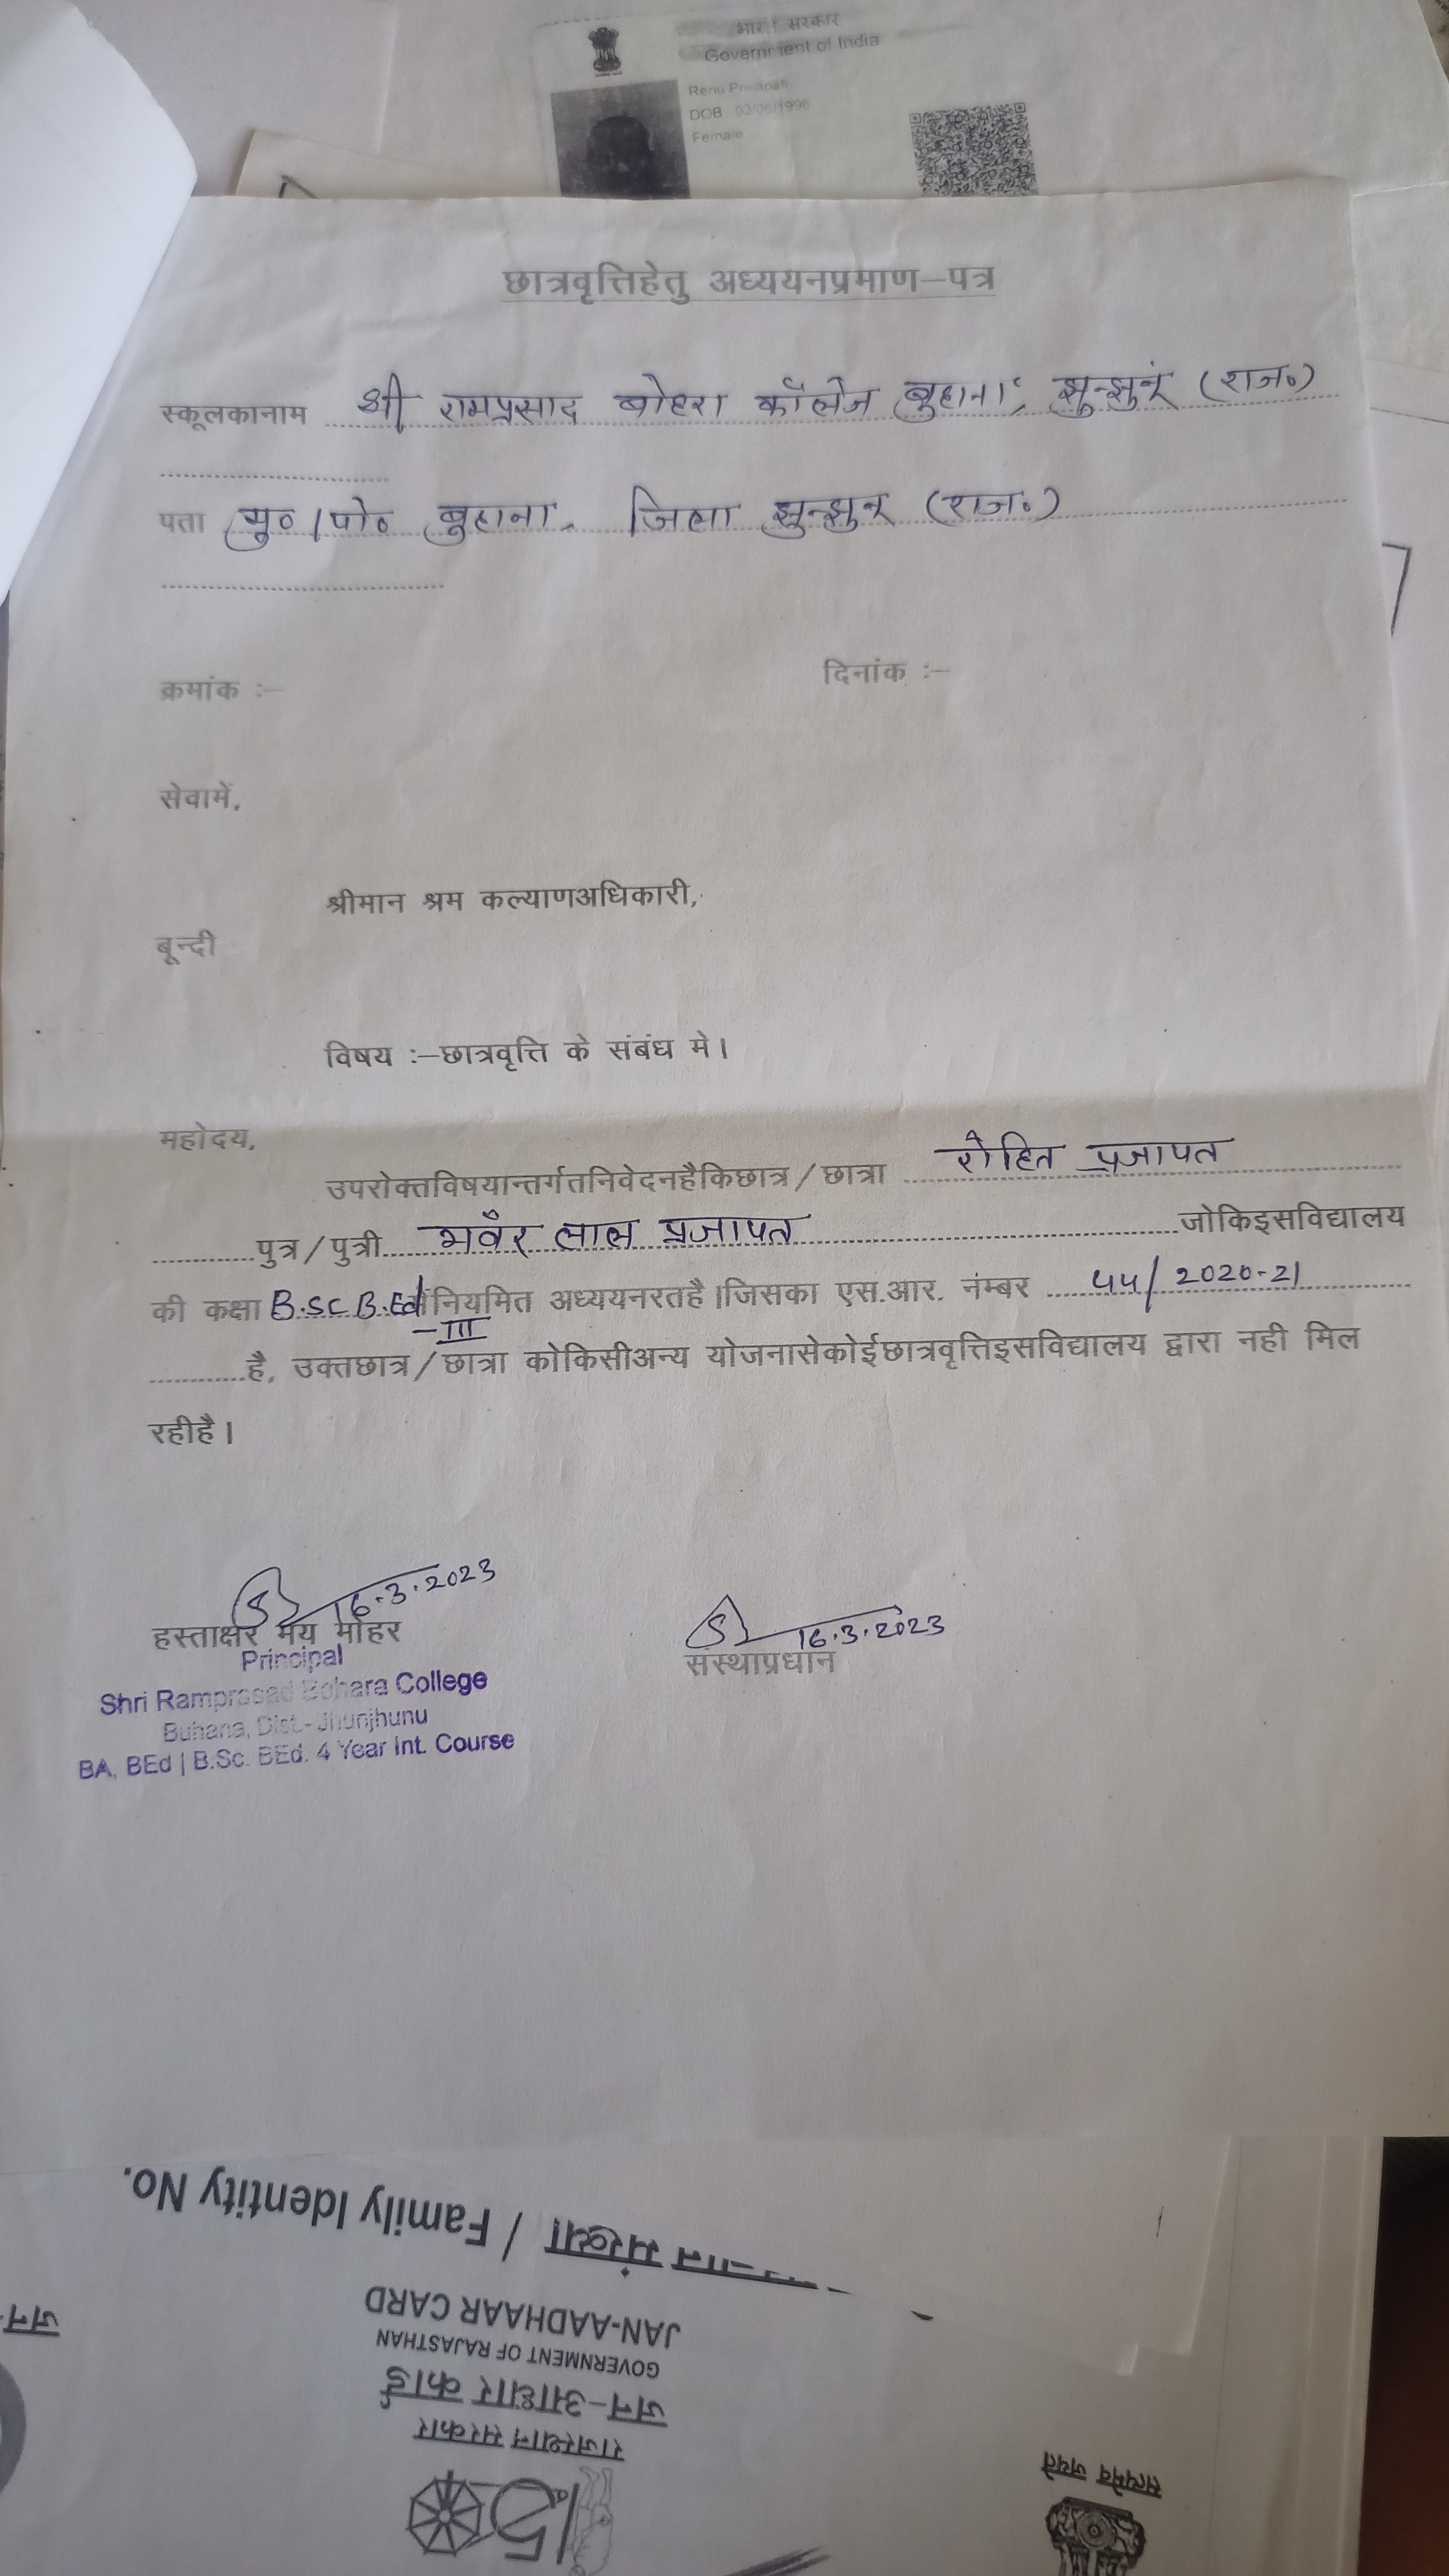 भारत सरकार
Government of India
Renu Prajapati
DOB 03/05/1996
Female
छात्रवृत्तिहेतु अध्ययनप्रमाण–पत्र
स्कूलकानाम श्री रामप्रसाद बोहरा कॉलेज बुहाना, झुन्झुनूं (राज०)
पता मु०/पो० बुहाना, जिला झुन्झुनू (राज०)
क्रमांक :– दिनांक :–
सेवामें,
श्रीमान श्रम कल्याणअधिकारी,
बून्दी
विषय :–छात्रवृत्ति के संबंध मे।
महोदय,
उपरोक्तविषयान्तर्गतनिवेदनहैकिछात्र/छात्रा रोहित प्रजापत
पुत्र/पुत्री भवँर लाल प्रजापत जोकिइसविद्यालय
की कक्षा B.Sc B.Ed में नियमित अध्ययनरतहै।जिसका एस.आर. नंम्बर 55/2020-21
-III
है, उक्तछात्र/छात्रा कोकिसीअन्य योजनासेकोईछात्रवृत्तिइसविद्यालय द्वारा नही मिल
रहीहै।
16.3.2023 16.3.2023
हस्ताक्षर मय मोहर संस्थाप्रधान
Principal
Shri Ramprasad Bohara College
Buhana, Dist.- Jhunjhunu
BA, BEd | B.Sc. BEd. 4 Year Int. Course
संख्या / Family Identity No.
JAN-AADHAAR CARD
GOVERNMENT OF RAJASTHAN
जन–आधार कार्ड
राजस्थान सरकार
जन-
सत्यमेव जयते